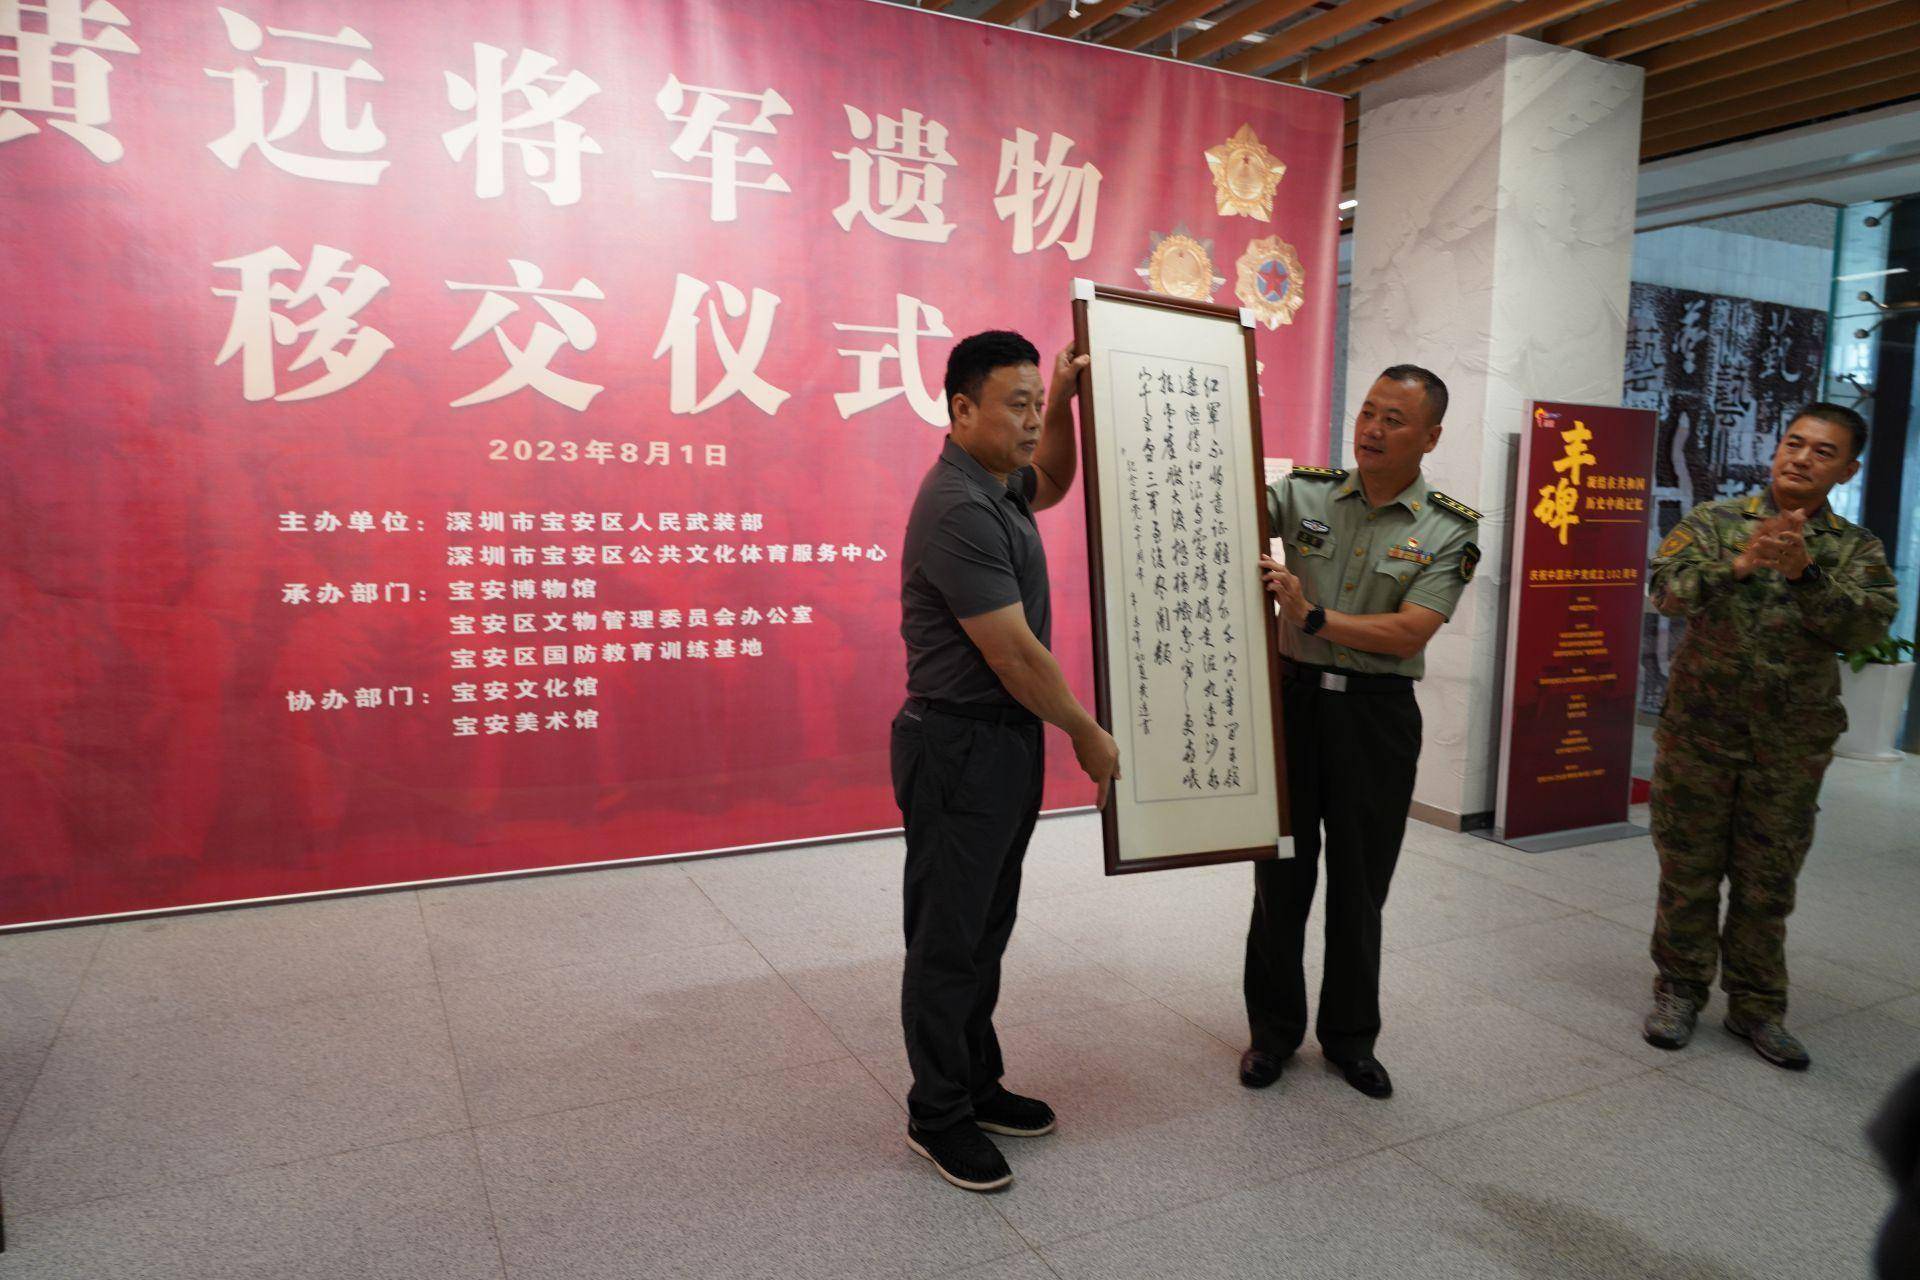 黄远将军遗物
移交仪式
2023年8月1日
主办单位：深圳市宝安区人民武装部
深圳市宝安区公共文化体育服务中心
承办部门：宝安博物馆
宝安区文物管理委员会办公室
宝安区国防教育训练基地
协办部门：宝安文化馆
宝安美术馆
红军不怕远征难万水千山只等闲五岭
逶迤腾细浪乌蒙磅礴走泥丸金沙水
拍云崖暖大渡桥横铁索寒更喜岷
山千里雪三军过后尽开颜
丰碑
凝结在共和国
历史中的记忆
庆祝中国共产党成立102周年